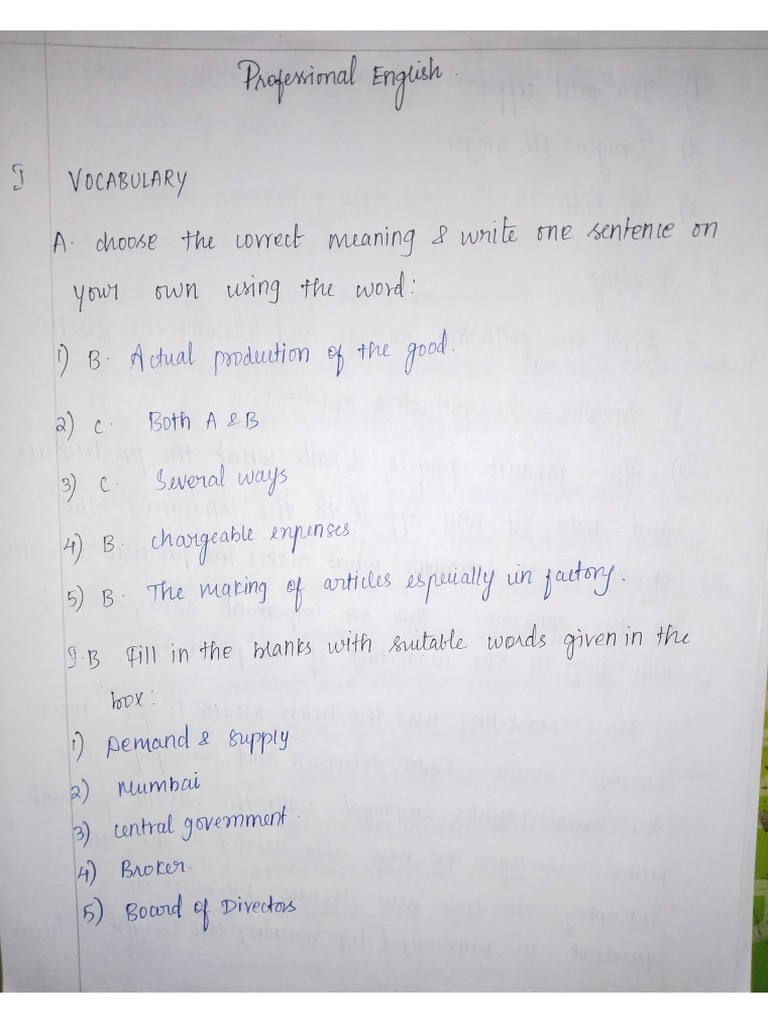 Professional English.
I VOCABULARY
A. choose the correct meaning & write one sentence on
your own using the word:
1) B. Actual production of the good.
2) C. Both A & B
3) C. Several ways
4) B. chargeable expenses.
5) B. The making of articles especially in factory.
I.B Fill in the blanks with suitable words given in the
box:
1) Demand & Supply
2) Mumbai
3) central government.
4) Broker.
5) Board of Directors